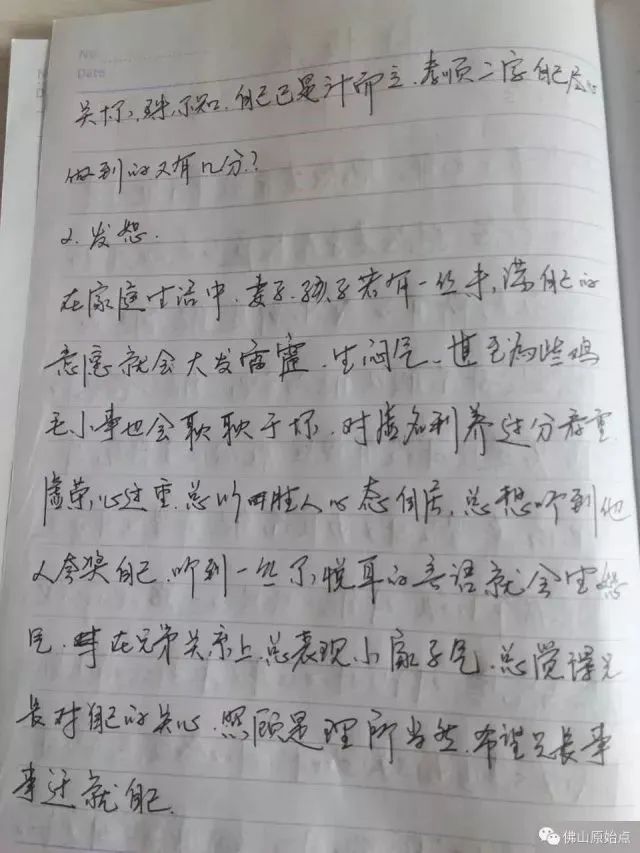 No.
Date
关怀,殊不知,自己已是计而立,孝顺二字自己尽心
做到的又有几分?
2.发怒.
在家庭生活中,妻子,孩子若有一丝未,满自己的
意愿就会大发雷霆,生闷气,甚至为些鸡
毛小事也会耿耿于怀,对虚名利养过分看重
虚荣心过重,总以一胜人心态自居,总想听到他
人夸奖自己,听到一丝不悦耳的言语就会生怒
气,在兄弟关系上,总表现小家子气,总觉得兄
长对自己的关心,照顾是理所当然,希望兄长事
事迁就自己.
佛山原始点